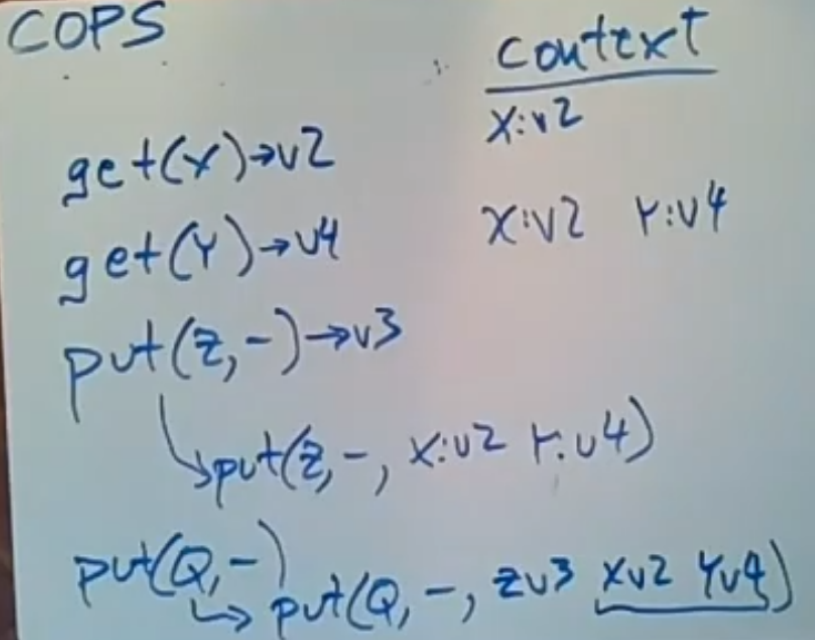 COPS
context
get(x)→v2 x:v2
get(Y)→v4 x:v2 Y:v4
put(z,-)→v3
↳put(z,-, x:v2 Y:v4)
put(Q,-)
↳ put(Q,-, zv3 xv2 Yv4)